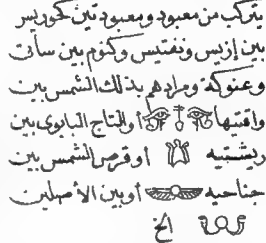 يتركب من معبود ومعبودتين كحوريس
بين إزيس ونفتيس وكنوم بين ساتت
وعنوكة ومرادهم بذلك الشمس بين
واقيتيها أو التاج البابوي بين
ريشتيه او قرص الشمس بين
جناحيه أو بين الأصلين
الخ